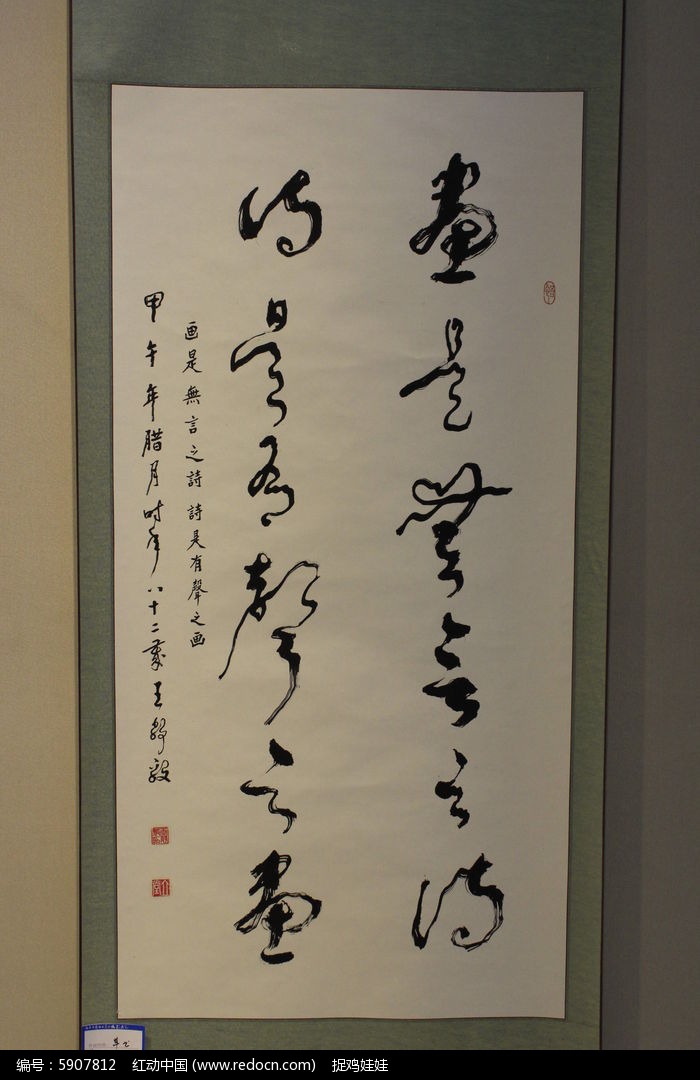 畫是無言之詩
詩是有聲之畫
画是無言之詩詩是有聲之画
甲午年腊月时年八十二歲王靜毅
草书
编号：5907812 红动中国 (www.redocn.com) 捉鸡娃娃